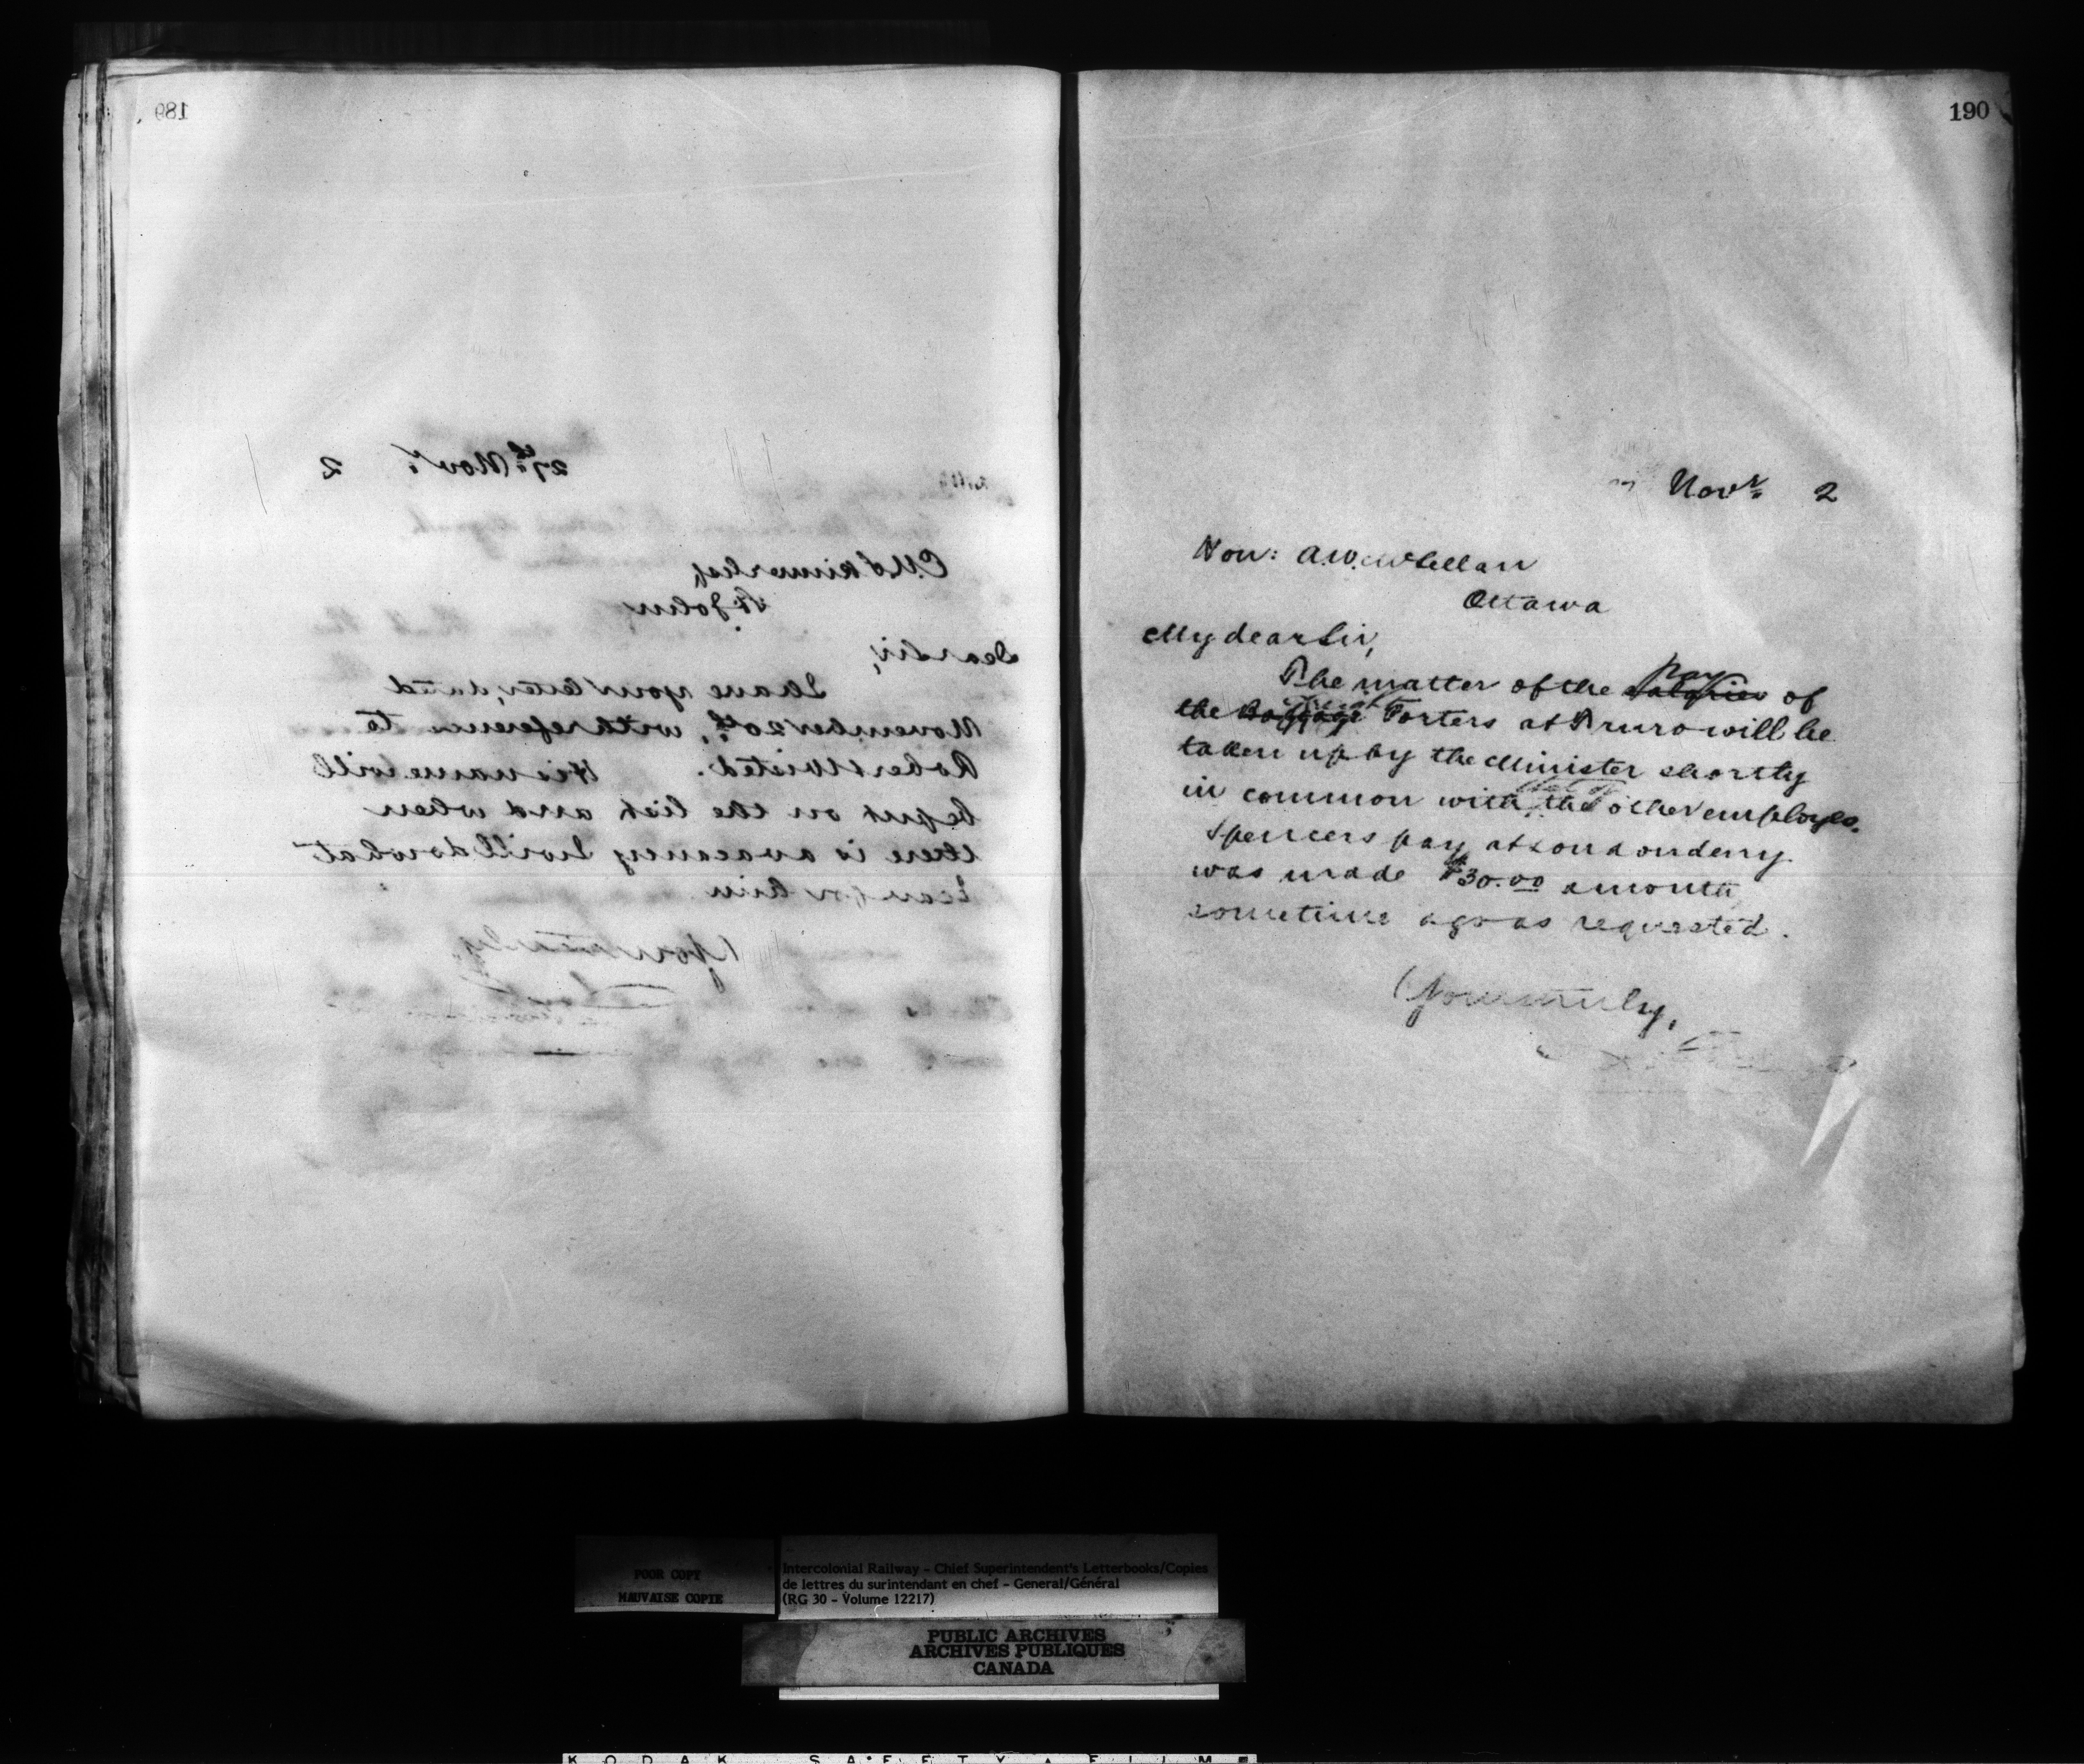 189
27th Novr. 2
C. N. Skinner Esq
St. John
Dear Sir,
I have your letter, dated
November 20th, with reference to
Robert Wisted. His name will
be put on the list and when
there is a vacancy I will do what
I can for him
Yours truly,
190
Novr. 2
Hon: A.W. McLellan
Ottawa
My dear Sir,
The matter of the salaries pay of
the Baggage Freight Porters at Truro will be
taken up by the Minister shortly
in common with that of the other employes.
Spencers pay at Londonderry
was made $30.00 a month
sometime ago as requested.
Yours truly,
POOR COPY
MAUVAISE COPIE
Intercolonial Railway – Chief Superintendent's Letterbooks/Copies
de lettres du surintendant en chef – General/Général
(RG 30 – Volume 12217)
PUBLIC ARCHIVES
ARCHIVES PUBLIQUES
CANADA
KODAK SAFETY FILM